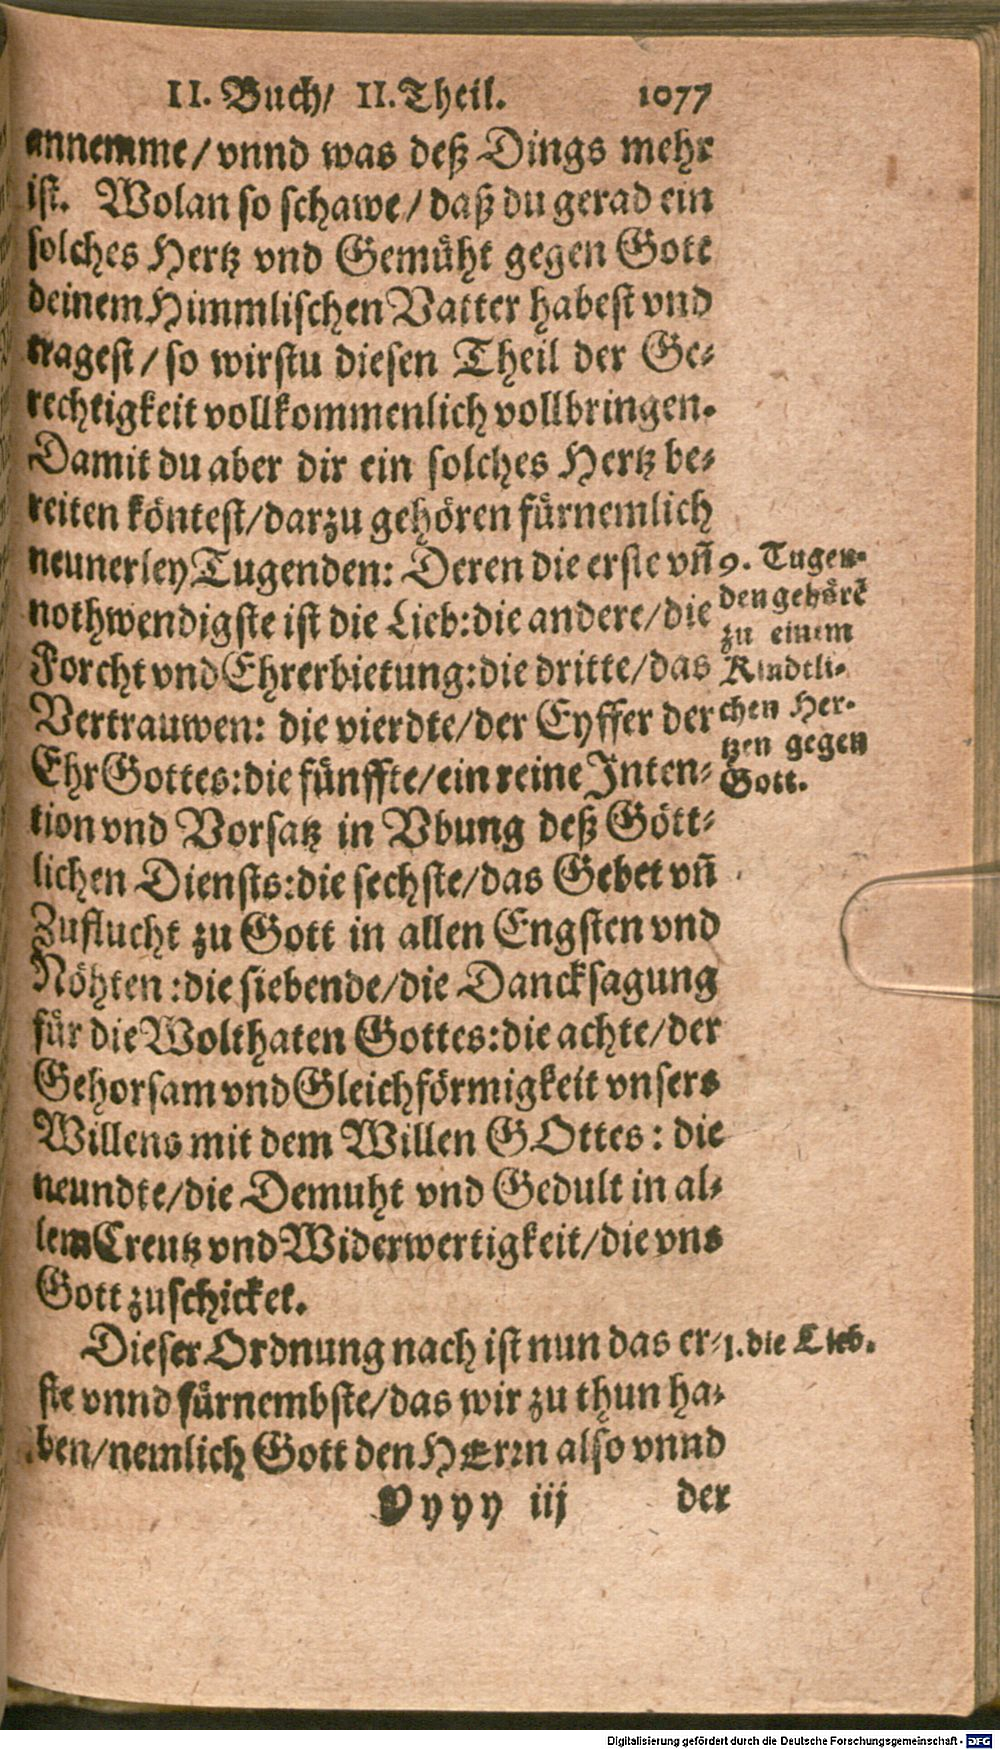 II. Buch/ II. Theil. 1077
annemme/ vnnd was deß Dings mehr
ist. Wolan so schawe/ daß du gerad ein
solches Hertz vnd Gemüht gegen Gott
deinem Himmlischen Vatter habest vnd
tragest/ so wirstu diesen Theil der Ge-
rechtigkeit vollkommenlich vollbringen.
Damit du aber dir ein solches Hertz be-
reiten köntest/ darzu gehören fürnemlich
neunerley Tugenden: Deren die erste vñ
nothwendigste ist die Lieb: die andere/ die
Forcht vnd Ehrerbietung: die dritte/ das
Vertrauwen: die vierdte/ der Eyffer der
Ehr Gottes: die fünffte/ ein reine Inten-
tion vnd Vorsatz in Vbung deß Gött-
lichen Diensts: die sechste/ das Gebet vñ
Zuflucht zu Gott in allen Engsten vnd
Nöhten: die siebende/ die Dancksagung
für die Wolthaten Gottes: die achte/ der
Gehorsam vnd Gleichförmigkeit vnsers
Willens mit dem Willen GOttes: die
neundte/ die Demuht vnd Gedult in al-
lem Creutz vnd Widerwertigkeit/ die vns
Gott zuschicket.
9. Tugen-
den gehörē
zu einem
Kindtli-
chen Her-
tzen gegen
Gott.
Dieser Ordnung nach ist nun das er-
ste vnnd fürnembste/ das wir zu thun ha-
ben/ nemlich Gott den HErrn also vnnd
1. die Lieb.
Yyyy iij der
Digitalisierung gefördert durch die Deutsche Forschungsgemeinschaft - DFG